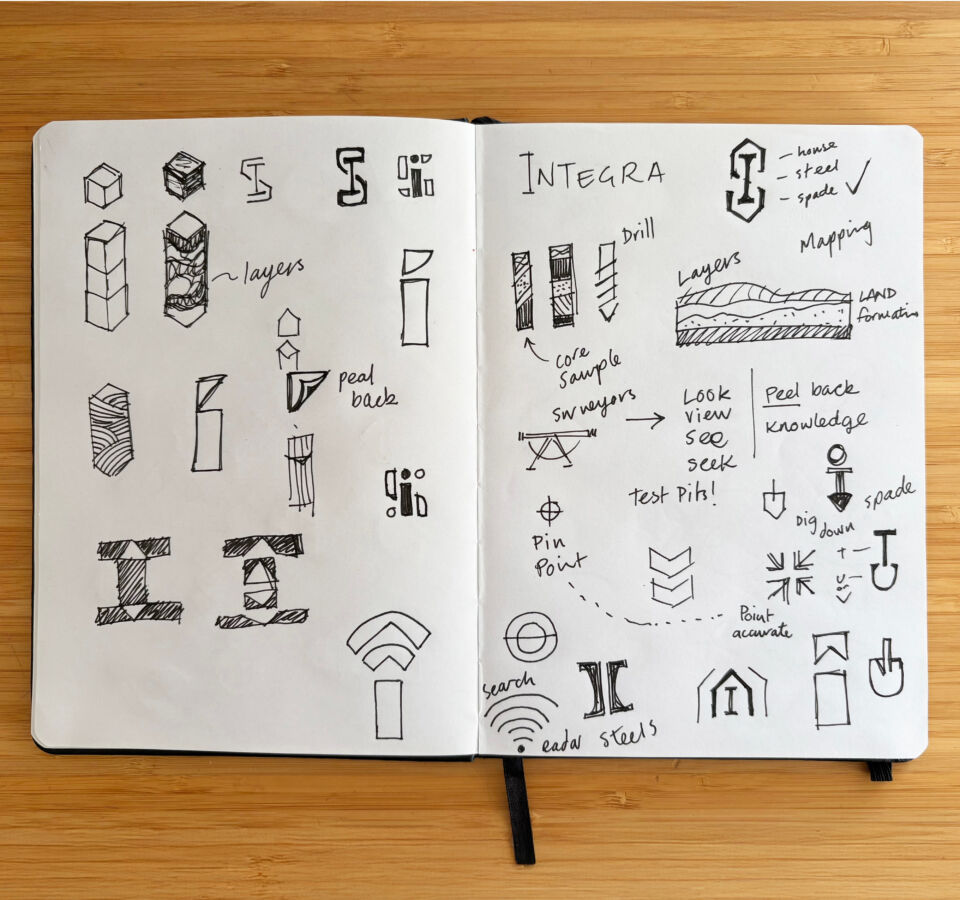 layers
peal
back
INTEGRA
– house
– steel
– spade ✓
Mapping
Drill
Layers
LAND
formation
core
sample
surveyors
Look
view
see
seek
Peel back
knowledge
Test Pits!
spade
Dig
down
Pin
Point
Point
accurate
search
radar
steels